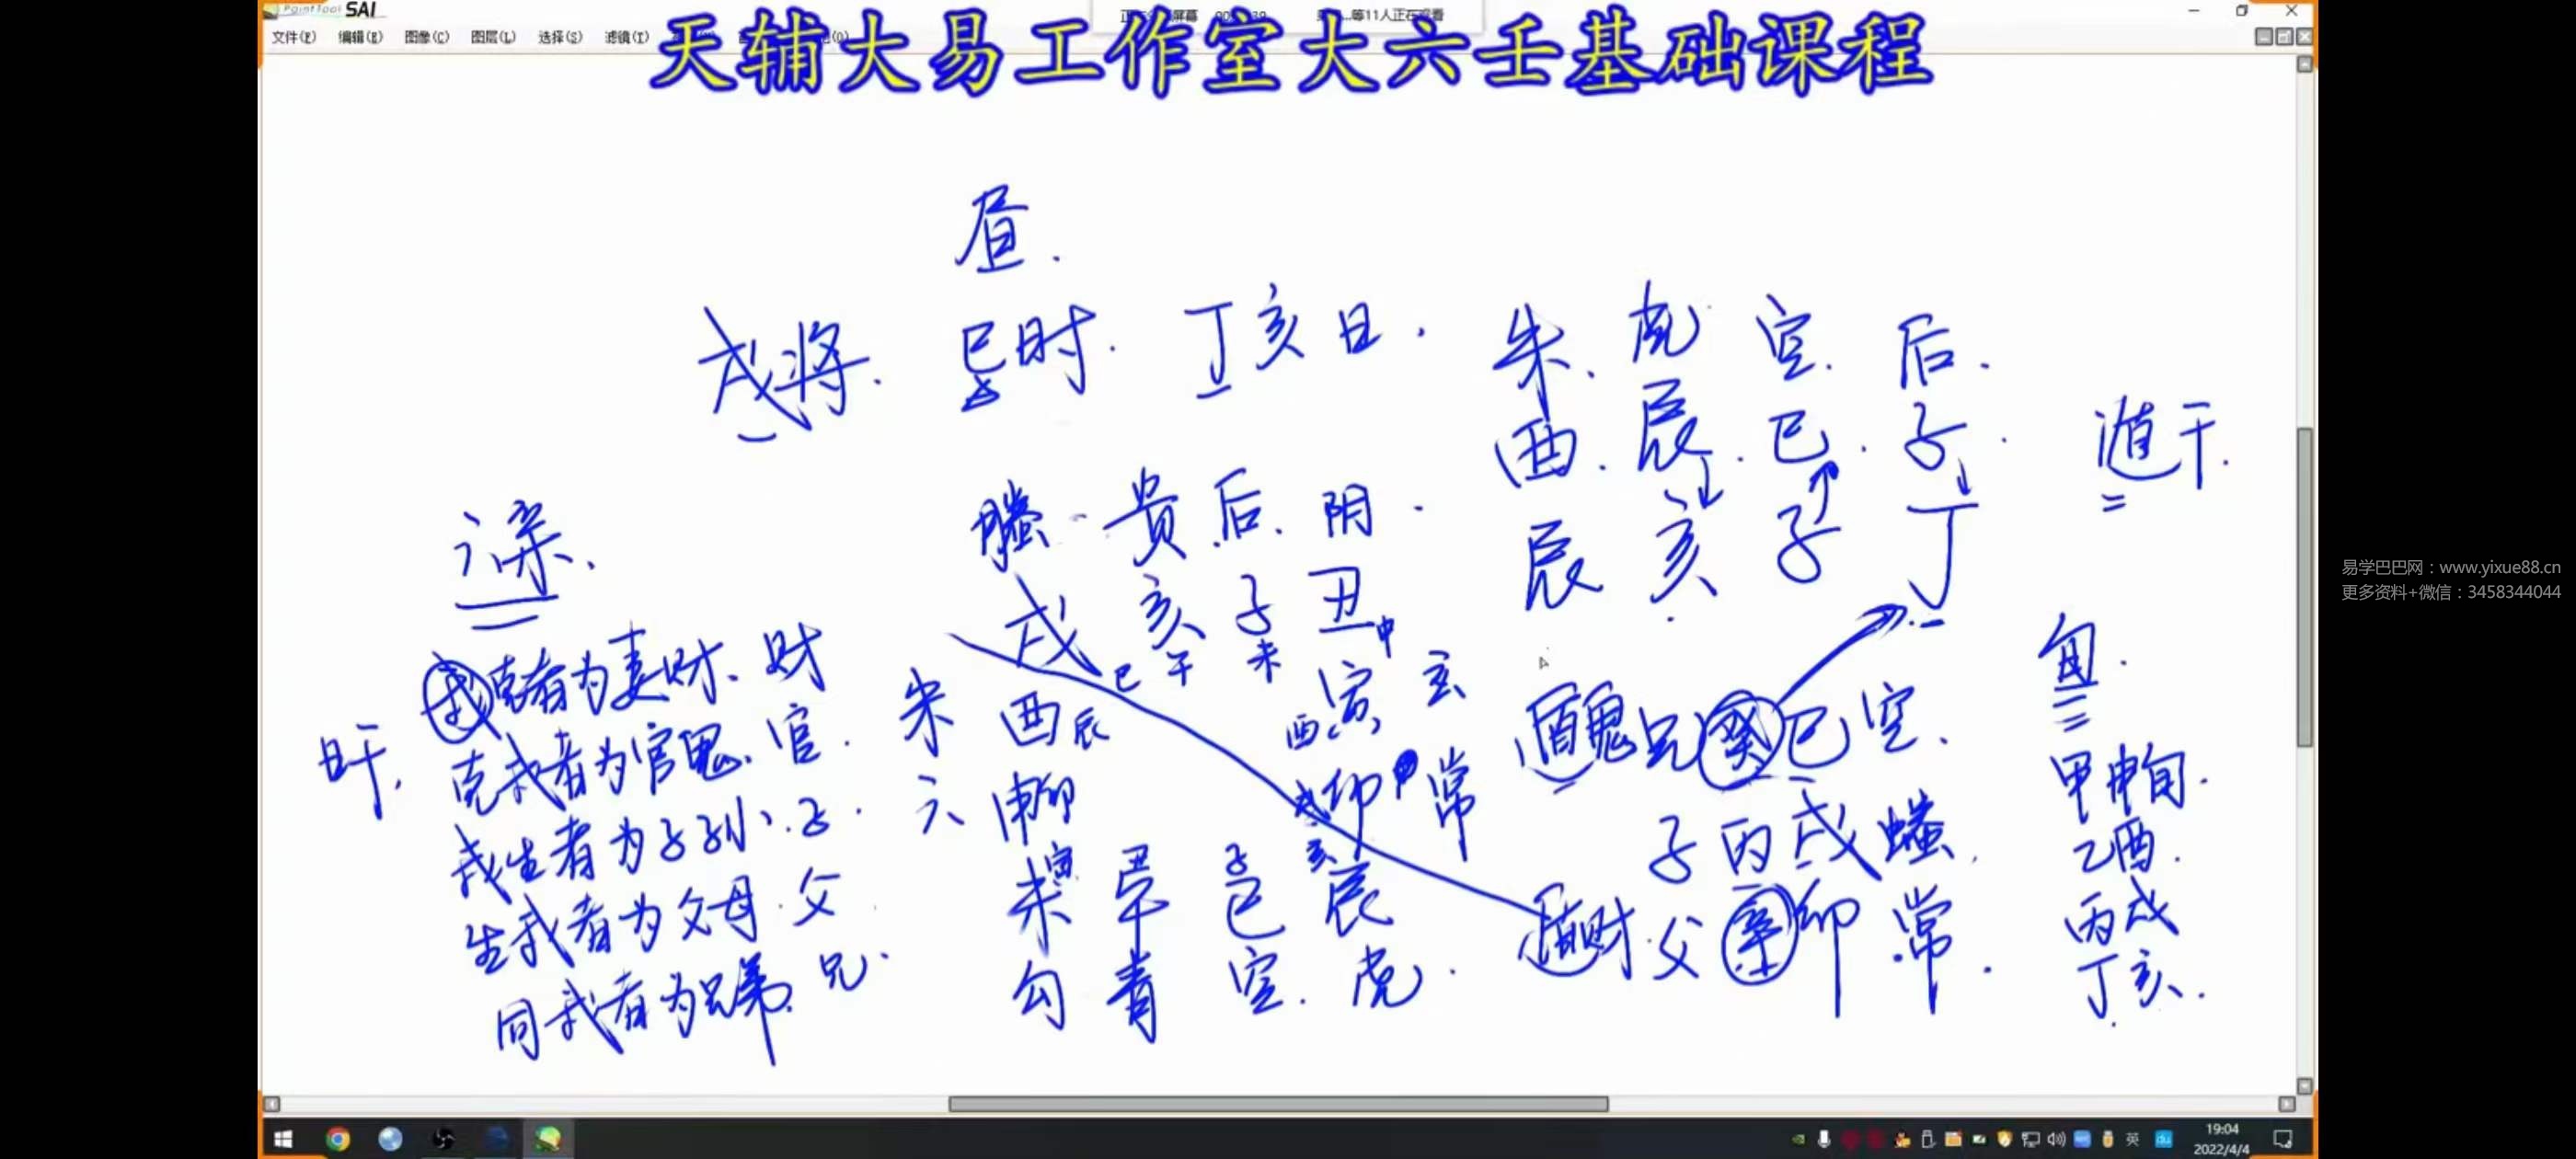 PaintTool SAI
文件(F) 编辑(E) 图像(C) 图层(L) 选择(S) 滤镜(T)
等11人正在观看
天辅大易工作室大六壬基础课程
昼.
戌将. 巳时. 丁亥日.
朱. 虎 空. 后.
酉. 辰. 巳. 子.
辰 亥 子 丁
遁干.
螣 贵 后. 阴.
戌 亥 子 丑
巳 午 未 申
朱 酉 辰
酉 寅 玄
六 申卯
戌 卯 常
寅 丑 子 亥
未 午 巳 辰
勾 青 空. 虎.
六亲.
日干.
我克者为妻财. 财
克我者为官鬼. 官.
我生者为子孙. 子.
生我者为父母. 父
同我者为兄弟. 兄.
遁鬼 兄 癸 巳 空.
子 丙 戌 螣.
遁财. 父 辛 卯 常.
旬.
甲申旬.
乙酉.
丙戌
丁亥.
易学巴巴网：www.yixue88.cn
更多资料+微信：3458344044
英
19:04
2022/4/4